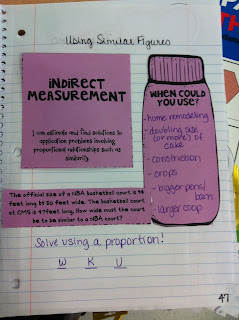 Using Similar Figures
INDIRECT
MEASUREMENT
I can estimate and find solutions to
application problems involving
proportional relationships such as
similarity.
The official size of a NBA basketball court is 94
feet long by 50 feet wide. The basketball court
at CMS is 47 feet long. How wide must the court
be to be similar to a NBA court?
WHEN COULD
YOU USE?
- home remodeling
- doubling size
(or more) of
cake
- construction
- crops
- bigger pens/
barn
- larger coop
Solve using a proportion!
W K U
47